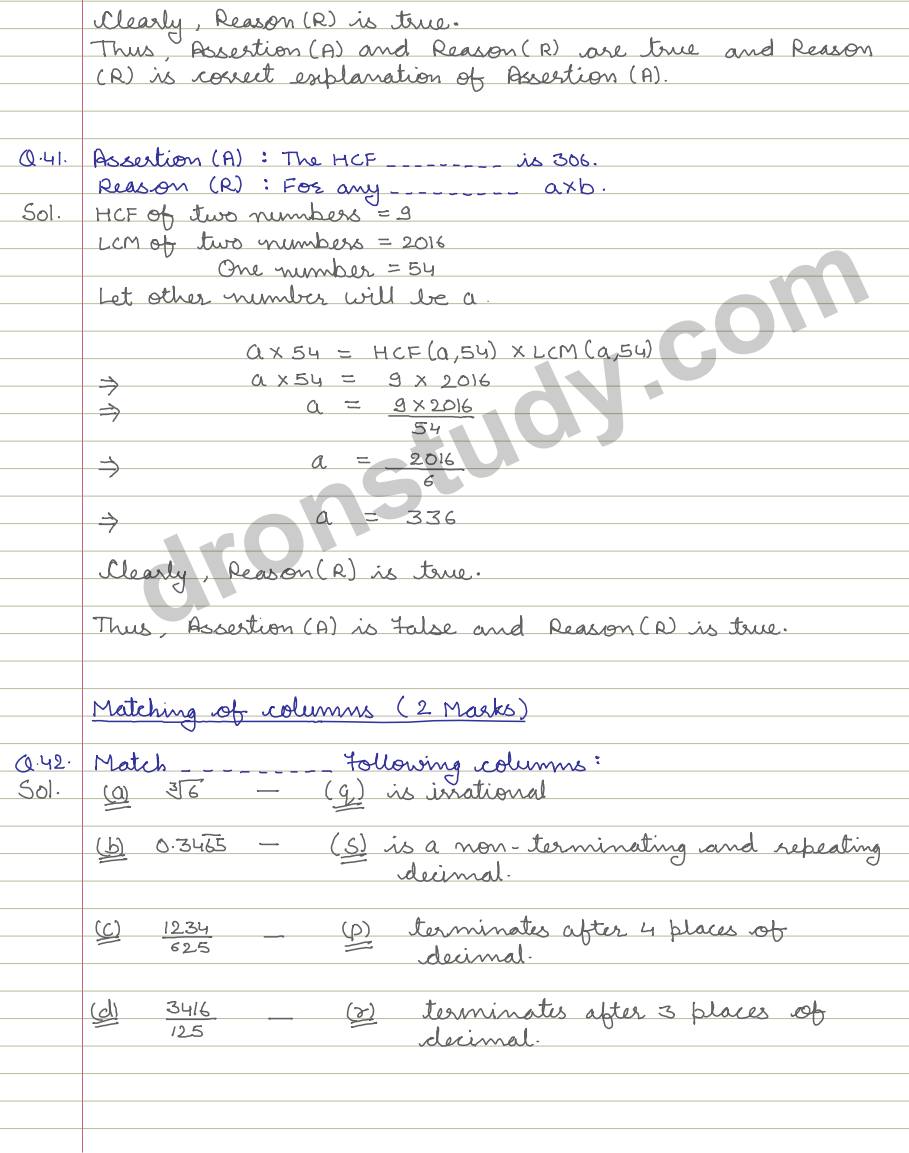 Clearly, Reason (R) is true.
Thus, Assertion (A) and Reason (R) are true and Reason
(R) is correct explanation of Assertion (A).
Q.41. Assertion (A) : The HCF --------- is 306.
Reason (R) : For any --------- a×b.
Sol. HCF of two numbers = 9
LCM of two numbers = 2016
One number = 54
Let other number will be a.
a × 54 = HCF(a,54) × LCM(a,54)
⇒ a × 54 = 9 × 2016
⇒ a = 9 × 2016 / 54
⇒ a = 2016 / 6
⇒ a = 336
Clearly, Reason (R) is true.
Thus, Assertion (A) is False and Reason (R) is true.
Matching of columns (2 Marks)
Q.42. Match --------- Following columns :
Sol. (a) ∛6 — (q) is irrational
(b) 0.346̅5̅ — (s) is a non-terminating and repeating
decimal.
(c) 1234/625 — (p) terminates after 4 places of
decimal.
(d) 3416/125 — (r) terminates after 3 places of
decimal.
dronstudy.com